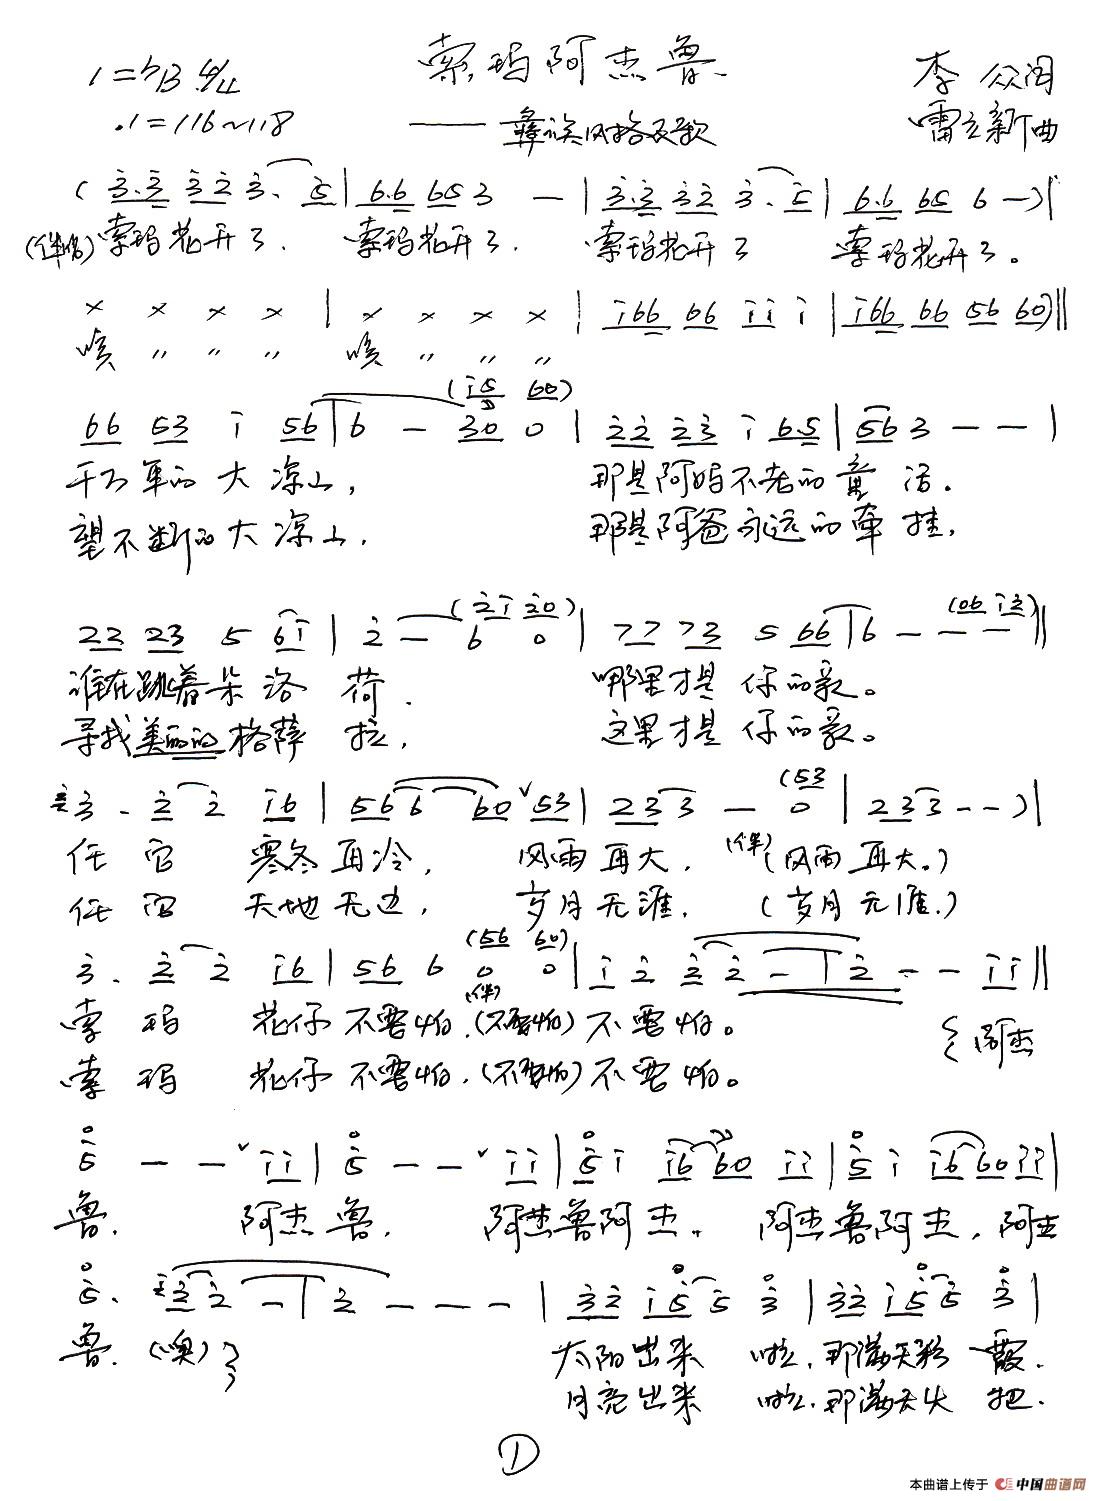 索玛阿杰鲁
1=♭B 4/4
♩=116~118
——彝族风格民歌
李众词
雷立新曲
(3.3 3 2 3. 5 | 6.6 65 3 — | 3.3 3 2 3. 5 | 6.6 65 6 —) |
(伴唱)索玛花开了. 索玛花开了. 索玛花开了 索玛花开了。
× × × × | × × × × | i66 66 i i i | i66 66 56 60) ||
嗨 〃 〃 〃 嗨 〃 〃 〃
(i5 60)
66 53 i 56 | 6 — 30 0 | 22 23 i 6.5 | 56 3 — — |
千万年的大凉山, 那是阿妈不老的童话.
望不断的大凉山, 那是阿爸永远的牵挂,
(2i 20) (06 i2)
22 23 5 6i | 2 — 6 0 | 77 73 5 66 | 6 — — — ||
谁在跳着朵洛荷. 哪里才是你的家。
寻找美丽的格萨拉, 这里才是你的家。
(53
3. 2 2 i6 | 56 6 60 53 | 23 3 — 0 | 23 3 — —) |
任它寒冬再冷, 风雨再大, (伴)(风雨再大。)
任它天地无边, 岁月无涯, (岁月无涯.)
(56 60)
3. 2 2 i6 | 56 6 0 0 | i 2 2 2 — | 2 — — i i ||
(伴)
索玛花仔不需怕.(不需怕)不需怕。 {阿杰
索玛花仔不需怕.(不需怕)不需怕。
5 — — i i | 5 — — i i | 5 i i6 60 i i | 5 i i6 60 i i |
鲁. 阿杰鲁, 阿杰鲁阿杰, 阿杰鲁阿杰, 阿杰
5. 32 2 — | 2 — — — | 32 i 5 5 3 | 32 i 5 5 3 |
鲁.(噢)} 太阳出来啦,那满天彩霞.
月亮出来啦,那满天火把.
①
本曲谱上传于 中国曲谱网